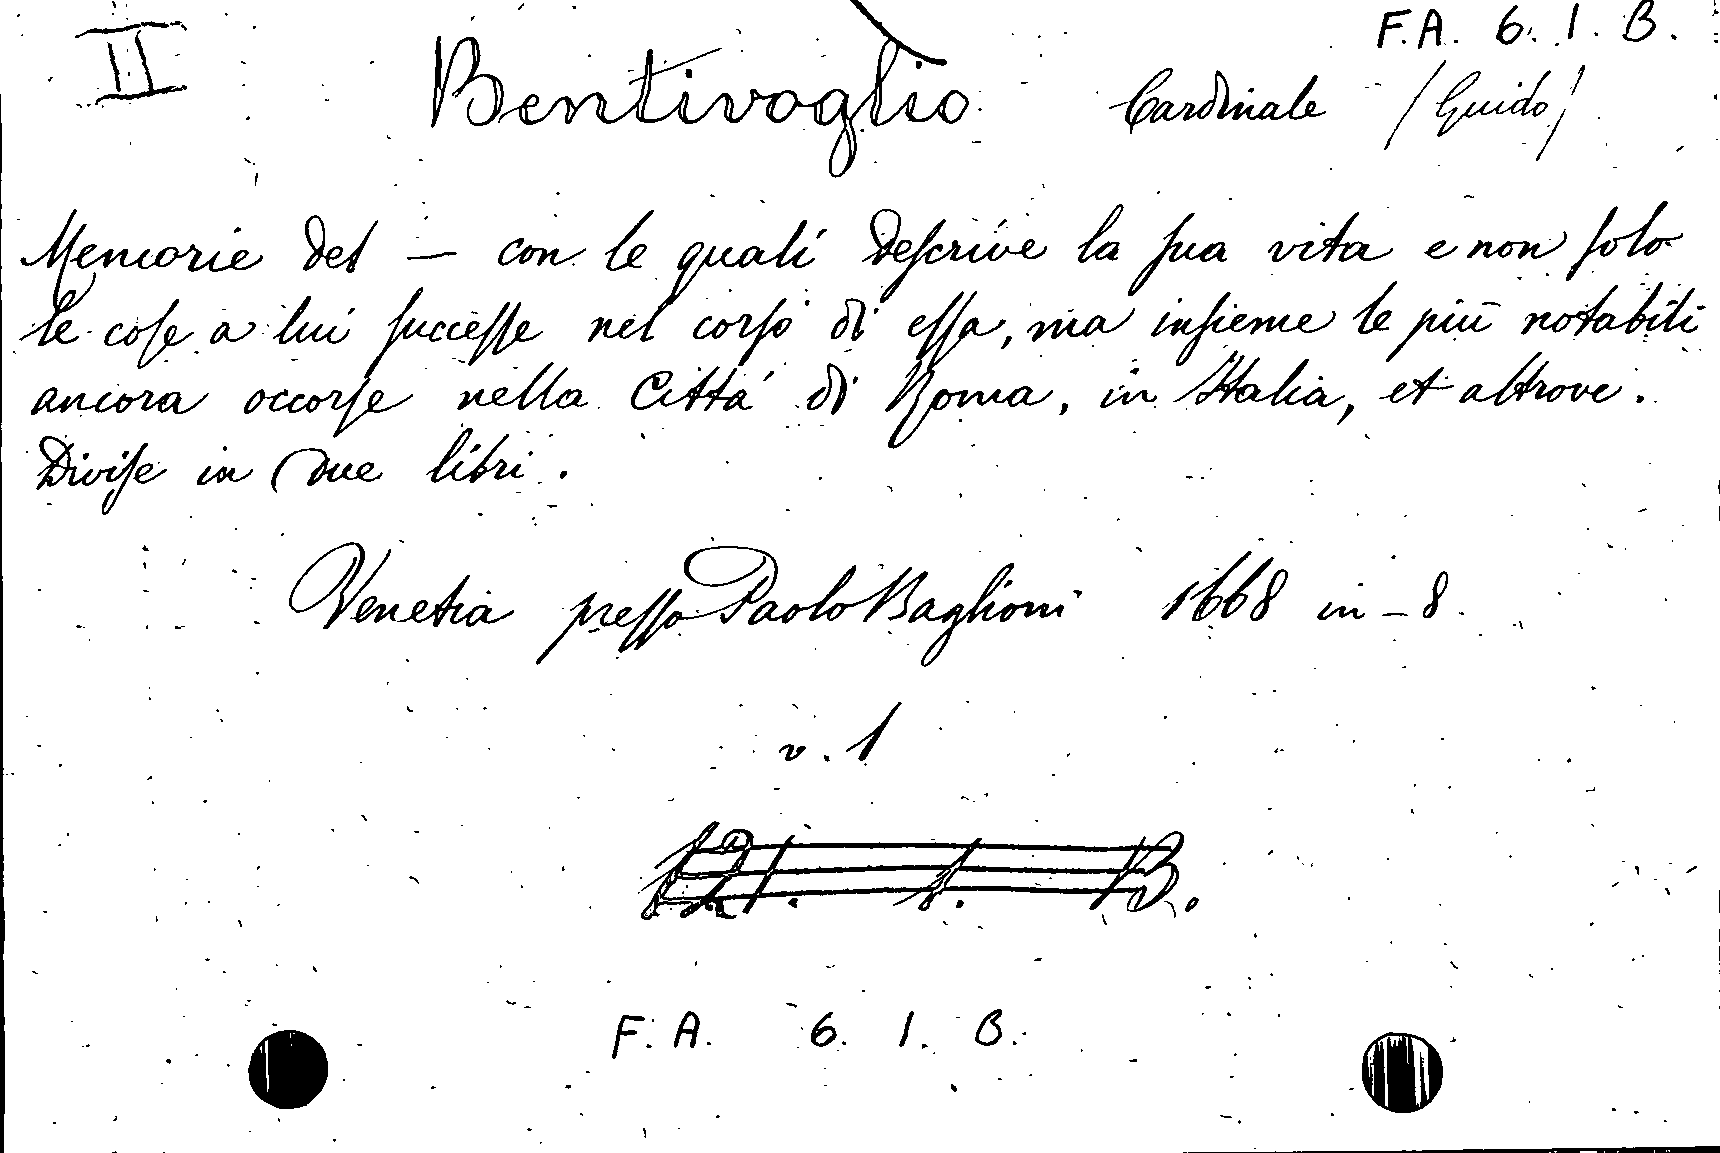 II
F.A. 6. I. B.
Bentivoglio Cardinale (Guido)
Memorie del — con le quali descrive la sua vita e non solo
le cose a lui successe nel corso di essa, ma insieme le più notabili
ancora occorse nella Cittá di Roma, in Italia, et altrove.
Divise in due libri.
Venetia presso Paolo Baglioni 1668 in-8.
v. 1
F. A. 6. I. B.